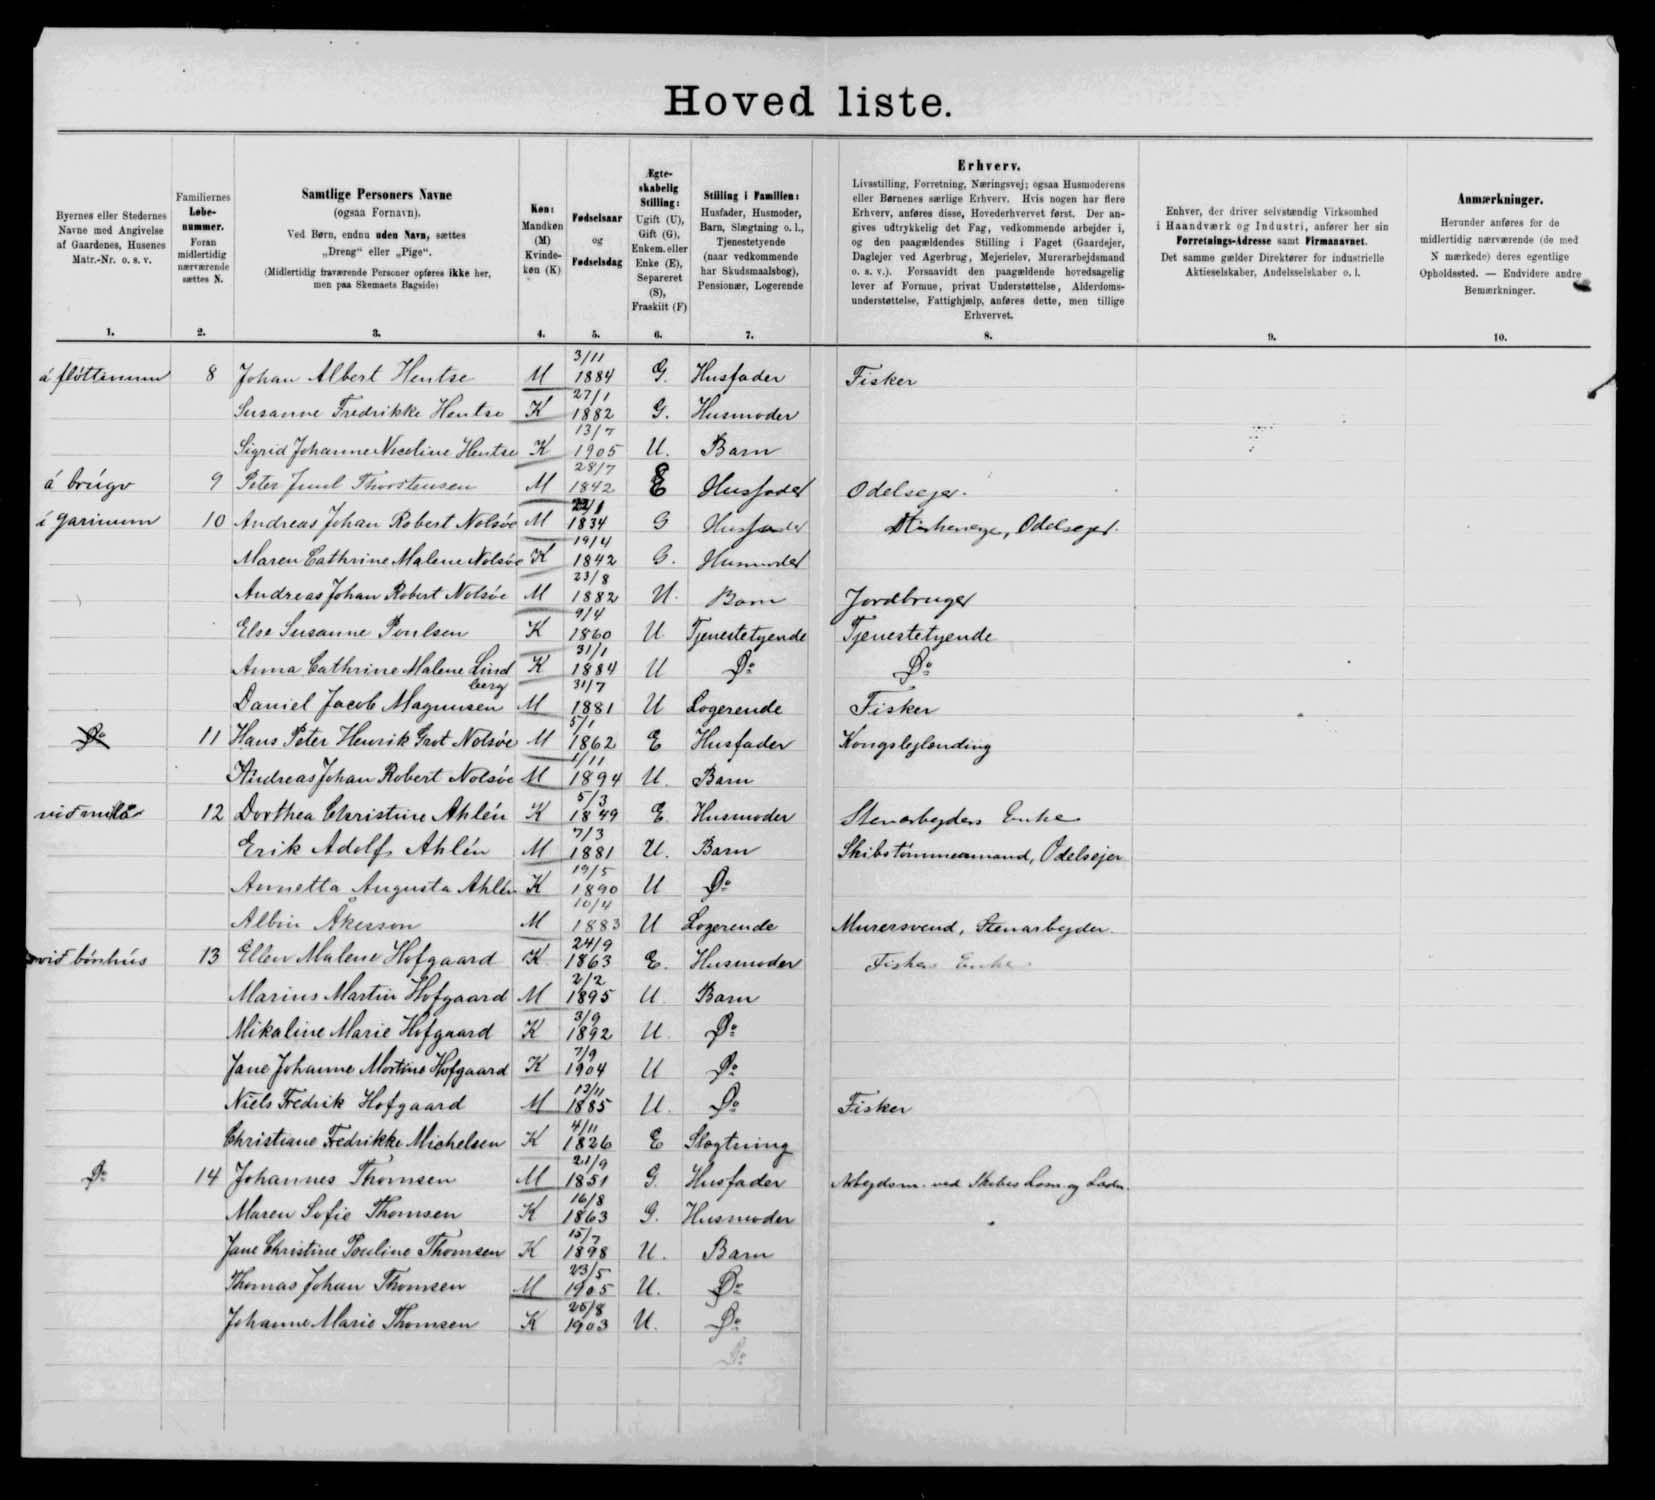 Hoved liste.
Byernes eller Stedernes
Navne med Angivelse
af Gaardenes, Husenes
Matr.-Nr. o. s. v.
Familiernes
Løbe-
nummer.
Foran
midlertidig
nærværende
sættes N.
Samtlige Personers Navne
(ogsaa Fornavn).
Ved Børn, endnu uden Navn, sættes
„Dreng“ eller „Pige“.
(Midlertidig fraværende Personer opføres ikke her,
men paa Skemaets Bagside)
Køn:
Mandkøn
(M)
Kvinde-
køn (K)
Fødselsaar
og
Fødselsdag
Ægte-
skabelig
Stilling:
Ugift (U),
Gift (G),
Enkem. eller
Enke (E),
Separeret
(S),
Fraskilt (F)
Stilling i Familien:
Husfader, Husmoder,
Barn, Slægtning o. l.,
Tjenestetyende
(naar vedkommende
har Skudsmaalsbog),
Pensionær, Logerende
Erhverv.
Livsstilling, Forretning, Næringsvej; ogsaa Husmoderens
eller Børnenes særlige Erhverv. Hvis nogen har flere
Erhverv, anføres disse, Hovederhvervet først. Der an-
gives udtrykkelig det Fag, vedkommende arbejder i,
og den paagældendes Stilling i Faget (Gaardejer,
Daglejer ved Agerbrug, Mejerielev, Murerarbejdsmand
o. s. v.). Forsaavidt den paagældende hovedsagelig
lever af Formue, privat Understøttelse, Alderdoms-
understøttelse, Fattighjælp, anføres dette, men tillige
Erhvervet.
Enhver, der driver selvstændig Virksomhed
i Haandværk og Industri, anfører her sin
Forretnings-Adresse samt Firmanavnet.
Det samme gælder Direktører for industrielle
Aktieselskaber, Andelsselskaber o. l.
Anmærkninger.
Herunder anføres for de
midlertidig nærværende (de med
N mærkede) deres egentlige
Opholdssted. — Endvidere andre
Bemærkninger.
1. 2. 3. 4. 5. 6. 7. 8. 9. 10.
á fløttinum 8 Johan Albert Hentse M 3/11 1884 G. Husfader Fisker
Susanne Fredrikke Hentse K 27/1 1882 G. Husmoder
Sigrid Johanne Nicoline Hentse K 13/7 1905 U. Barn
á brúgv 9 Peter Juul Thorstensen M 28/7 1842 E Husfader Odelsejer.
í garinum 10 Andreas Johan Robert Nolsøe M 1834 G Husfader Odelsejer.
Maren Cathrine Malene Nolsøe K 19/4 1842 G. Husmoder
Andreas Johan Robert Nolsøe M 23/8 1882 U. Barn Jordbruger
Else Susanne Poulsen K 9/4 1860 U Tjenestetyende Tjenestetyende
Anna Cathrine Malene Lind K 31/1 1884 U Do Do
berg
Daniel Jacob Magnusen M 31/7 1881 U Logerende Fisker
Do 11 Hans Peter Henrik Grot Nolsøe M 5/1 1862 E Husfader Kongslejlending
Andreas Johan Robert Nolsøe M 1/11 1894 U. Barn
12 Dorthea Christine Ahlén K 5/3 1849 E Husmoder Stenarbejders Enke
Erik Adolf Ahlén M 7/3 1881 U. Barn Skibstømmermand, Odelsejer
Annetta Augusta Ahlén K 19/5 1890 U Do
Albin Åkesson M 10/4 1883 U Logerende Murersvend, Stenarbejder
við bønhús 13 Ellen Malene Hofgaard K 24/9 1863 E. Husmoder Fiskers Enke
Marius Martin Hofgaard M 2/2 1895 U Barn
Mikaline Marie Hofgaard K 3/9 1892 U. Do
Jane Johanne Martine Hofgaard K 7/9 1904 U Do
Niels Fredrik Hofgaard M 1885 U. Do Fisker
Christiane Fredrikke Michelsen K 4/11 1826 E Slægtning
Do 14 Johannes Thomsen M 21/9 1851 G. Husfader Arbejdsm. ved Skibes Losn. og Ladn.
Maren Sofie Thomsen K 16/8 1863 G. Husmoder
Jane Christine Pouline Thomsen K 15/7 1898 U. Barn
Thomas Johan Thomsen M 23/5 1905 U. Do
Johanne Marie Thomsen K 25/8 1903 U. Do
Do